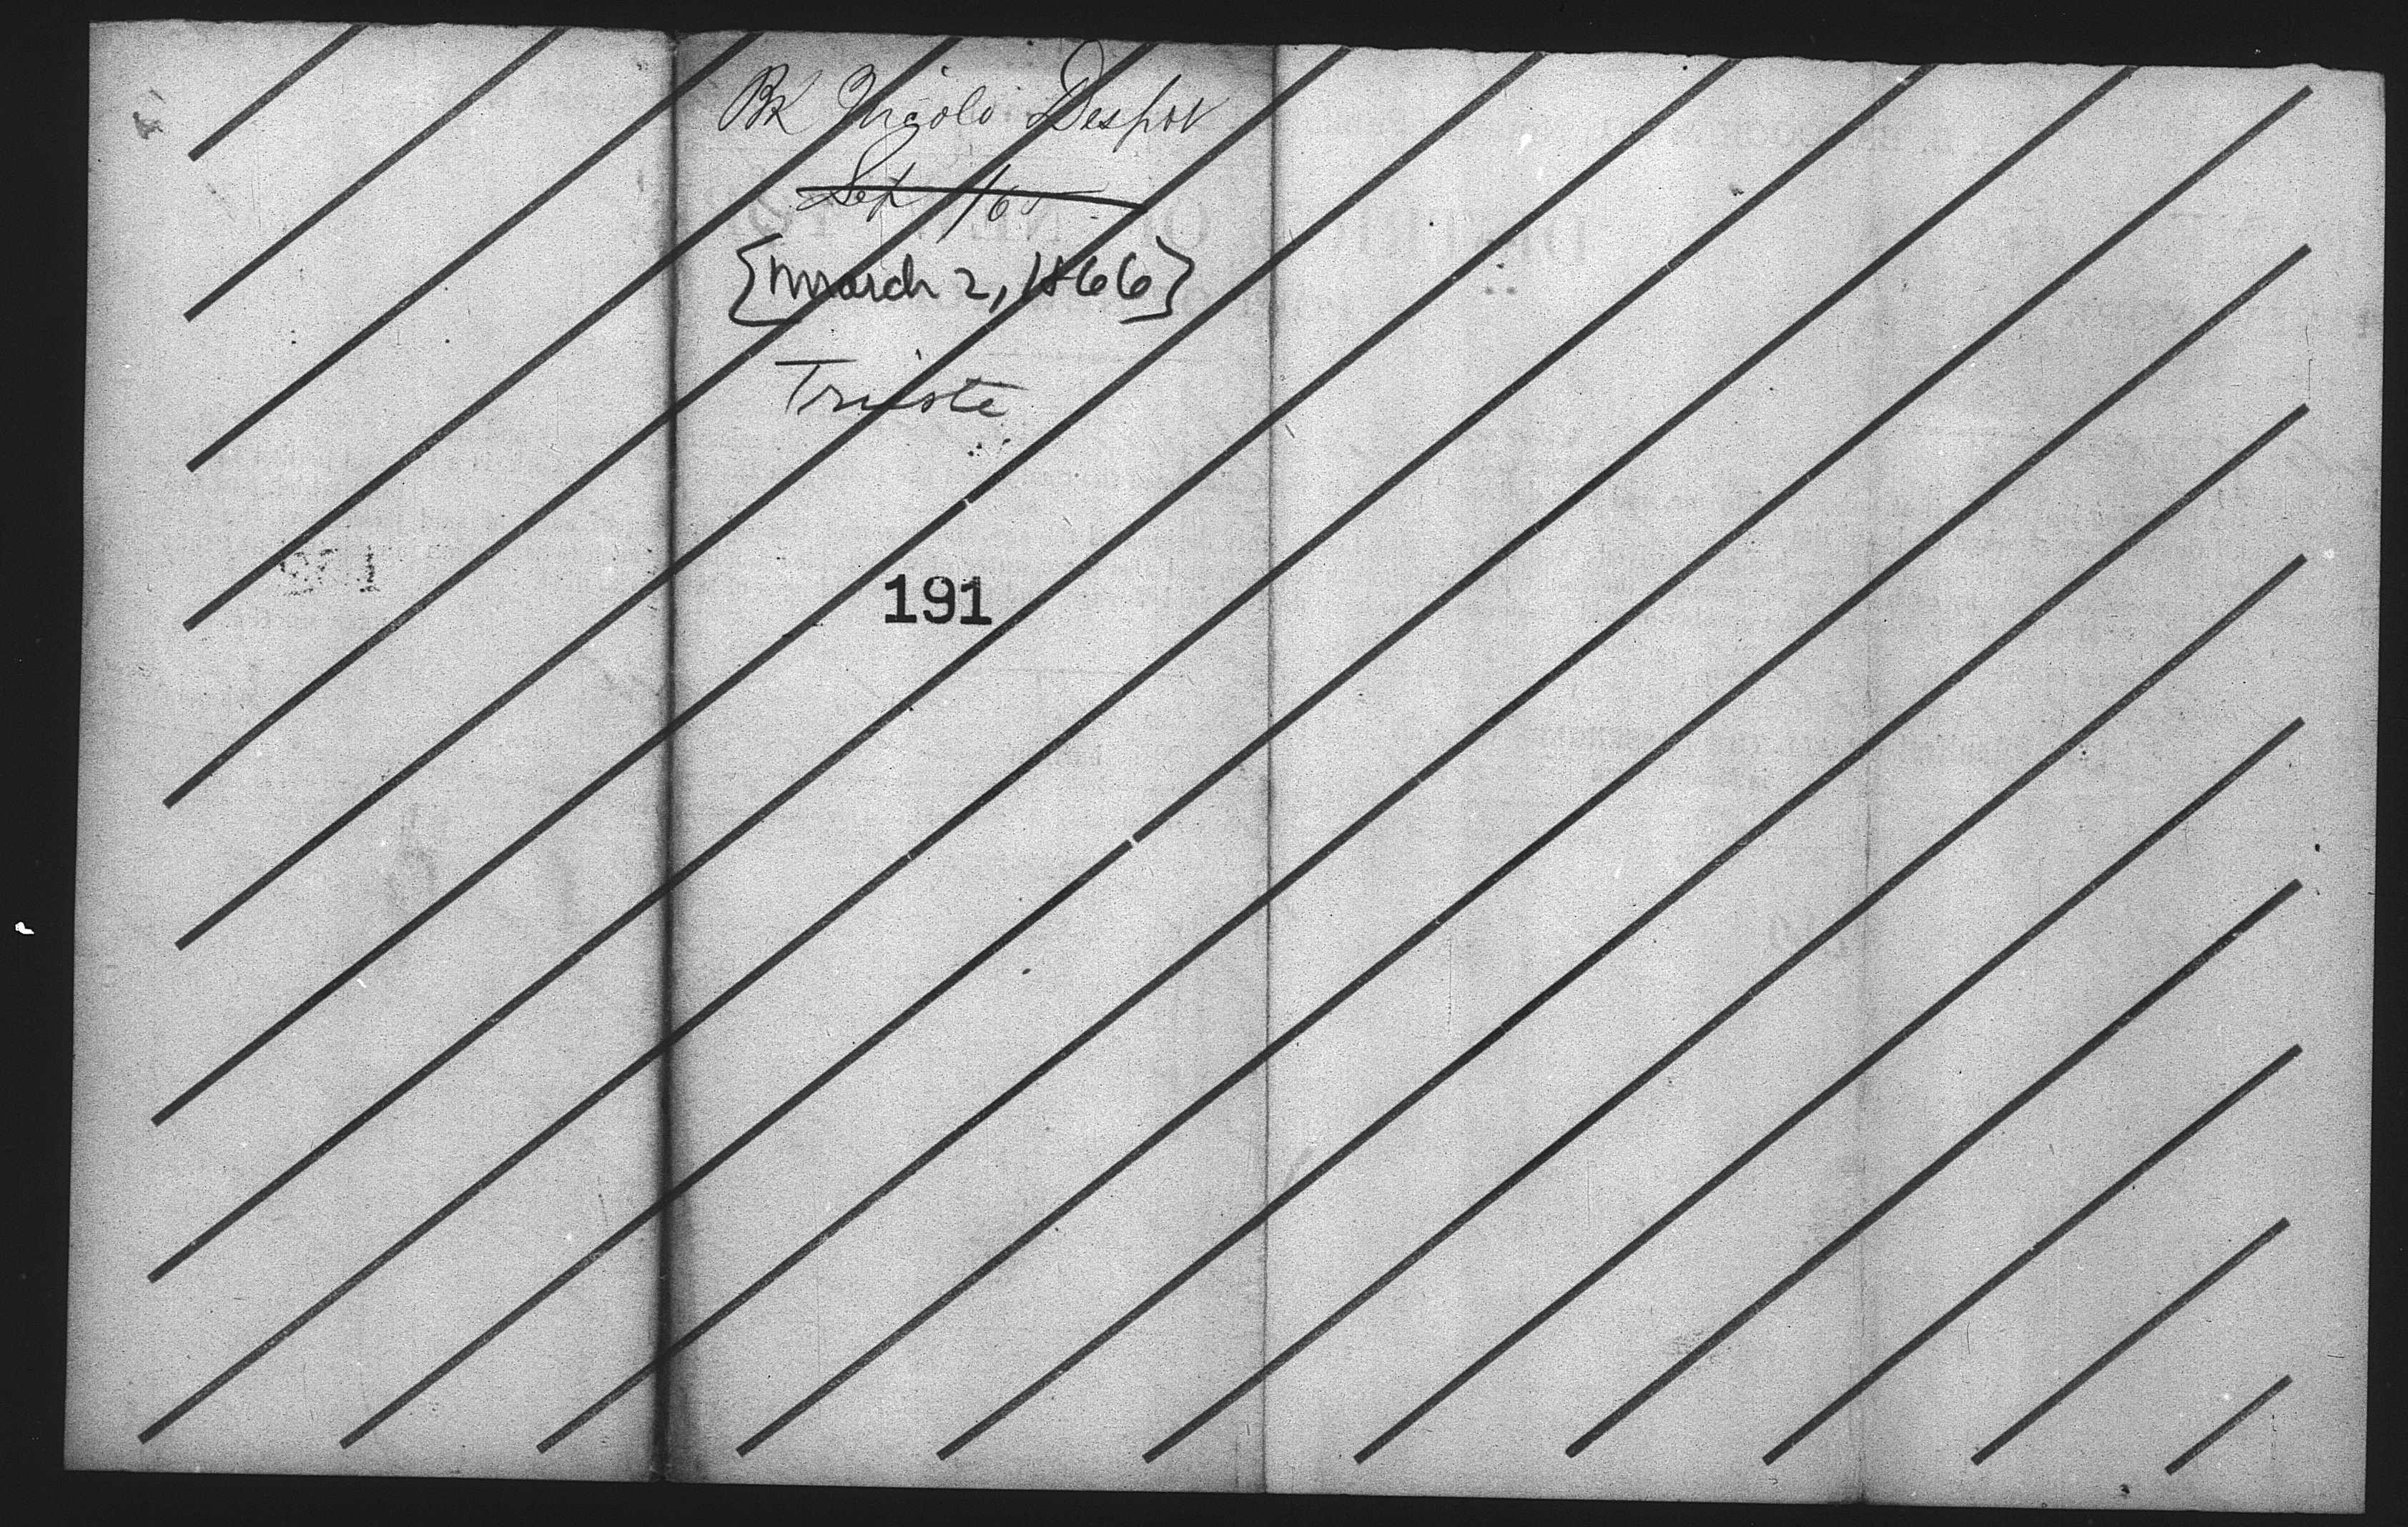 Bk Nicolo Despot
Sep /65
[March 2, 1866]
Trieste
191